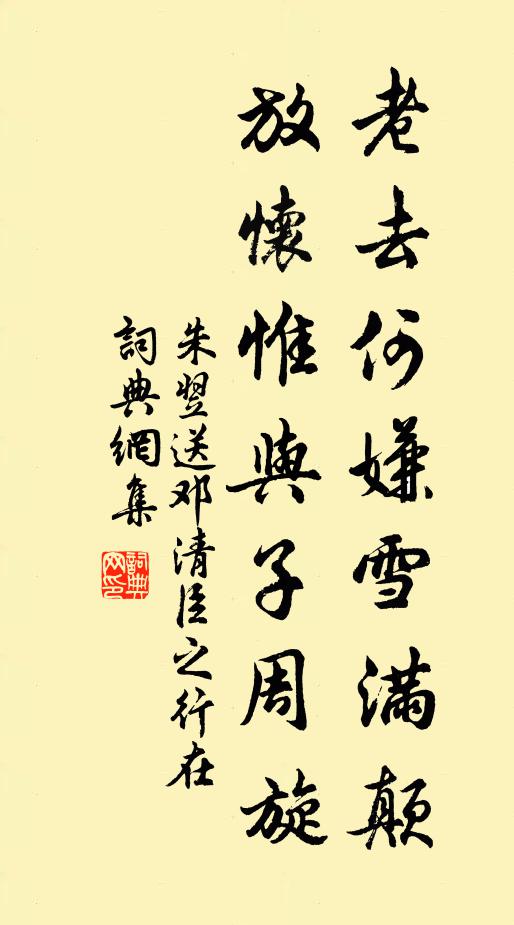 老去何嫌雪满颠
放懷惟與子周旋
朱翌送邓清臣之行在
詞典網集
詞典網印